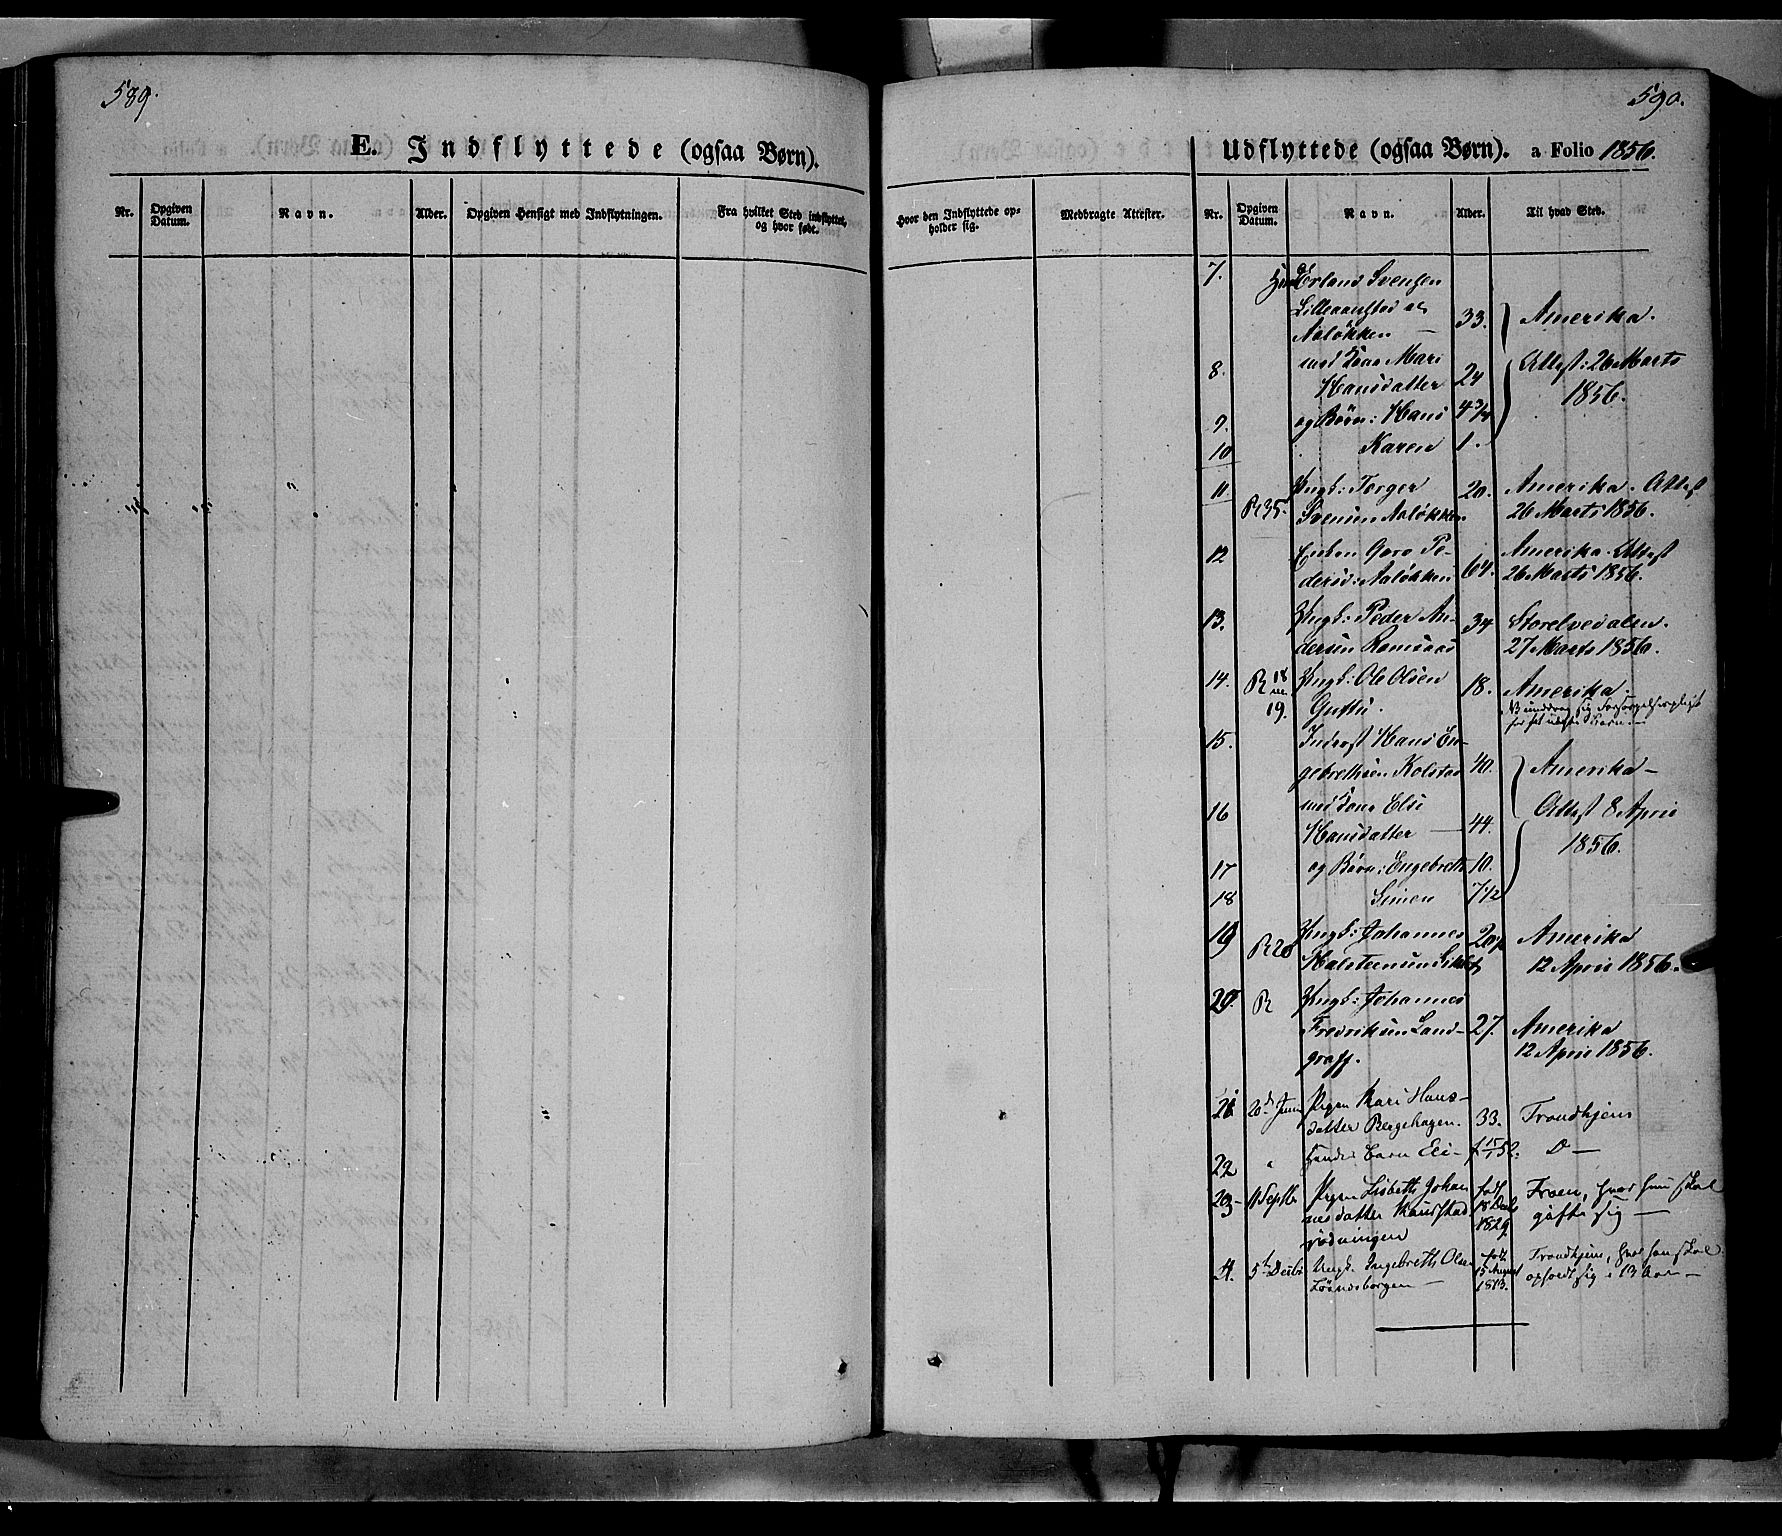 589.
E. Indflyttede (ogsaa Børn).
Nr.
Opgiven Datum.
Navn.
Alder.
Opgiven Hensigt med Indflytningen.
Fra hvilket Sted indflyttet, og hvor født.
590.
Udflyttede (ogsaa Børn). a Folio 1856.
Hvor den Indflyttede opholder sig.
Medbragte Attester.
Nr.
Opgiven Datum.
Navn.
Alder.
Til hvad Sted.
7. Erland Svensen
Lilleaanstad
Aaløkken — 33. Amerika.
8. med Kone Mari Attest: 26 Marts
Hansdatter 24 1856.
9. og Børn: Hans 4 3/4
10 Karen 1.
11. Ungk: Torger 20. Amerika. Attest
R 35. Svensen Aaløkken 26 Marts 1856.
12 Enken Goro Pe- Amerika. Attest
dersd: Aaløkken 64. 26 Marts 1856.
13. Ungk: Peder An- 34 Storelvedalen.
dersen Ramsaas 27 Marts 1856.
14. R 18 Ungk: Ole Olsen 18. Amerika.
19.
15. Inderst Hans En-
gebrethsen Kolstad 40. Amerika —
16 med Kone Eli Attest 8 April
Hansdatter — 44. 1856.
17 og Børn: Engebreth 10.
18 Simen 7 1/2
19 Ungk: Johannes 20 Amerika
R 20 Halstensen 12 April 1856.
20 R Ungk: Johannes
Fredriksen Land- 27. Amerika
graff. 12 April 1856.
21 20d Juni Pigen Kari Hans-
datter Bergehagen. 33. Trondhjem
22 " Hendes Barn Eli — D —
23 — 11 Septbr Pigen Lisbeth Johan født Froen, hvor hun skal
nesdatter 18 Decb gifte sig —
1829
24. 5te Decbr Ungk. Ingebreth Olsen født Trondhjem, hvor han skal
— 15 August opholde sig i
1813.